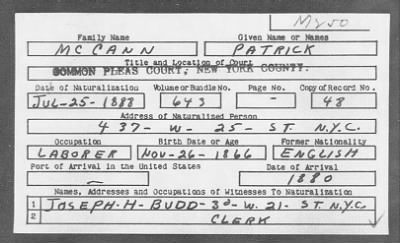 M250
Family Name Given Name or Names
MCCANN PATRICK
Title and Location of Court
COMMON PLEAS COURT, NEW YORK COUNTY.
Date of Naturalization Volume or Bundle No. Page No. Copy of Record No.
JUL-25-1888 643 - 48
Address of Naturalized Person
437-W-25-ST. N.Y.C.
Occupation Birth Date or Age Former Nationality
LABORER NOV-26-1866 ENGLISH
Port of Arrival in the United States Date of Arrival
— 1880
Names, Addresses and Occupations of Witnesses To Naturalization
1 JOSEPH-H-BUDD-30-W.21-ST. N.Y.C.
2 CLERK